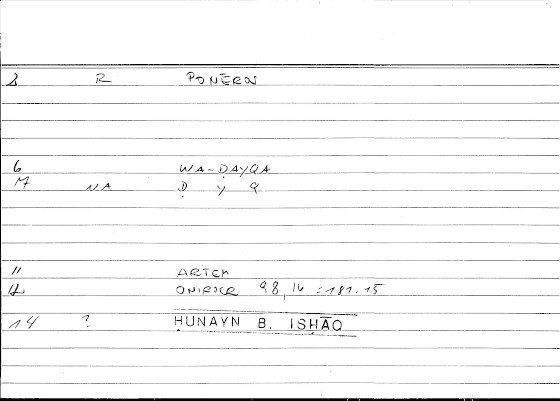 8 R PONĒROS
6 WA-ḌAYQA
M NA Ḍ Y Q
11 ARTEM
12 ONIROCR 98, 16 = 181.15
14 ? ḤUNAYN B. ISḤĀQ